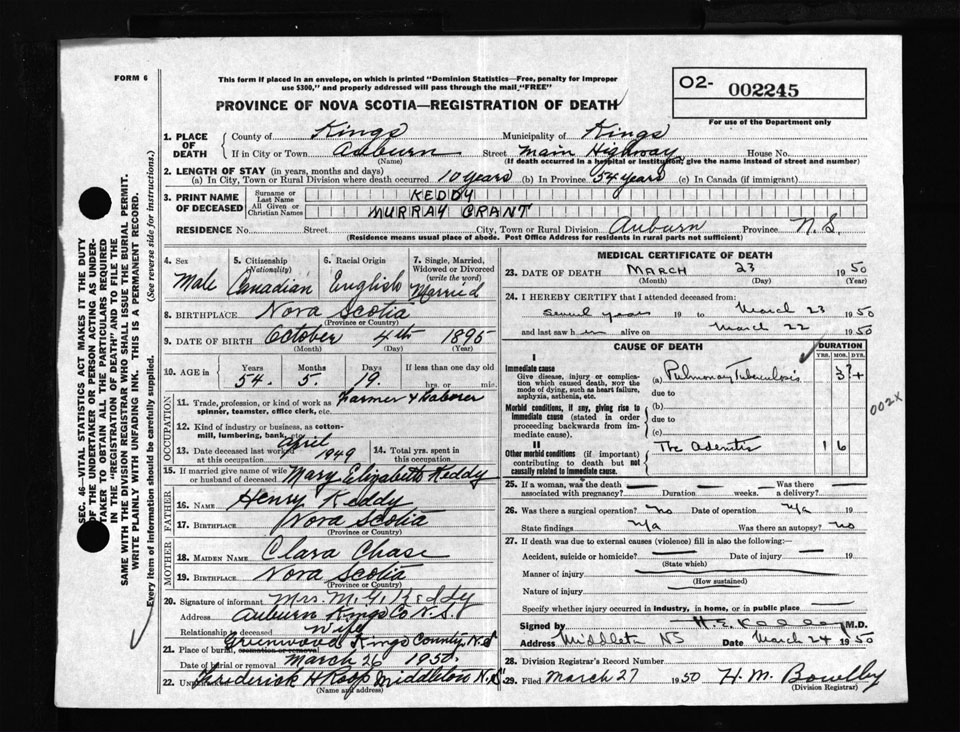 FORM 6
This form if placed in an envelope, on which is printed "Dominion Statistics—Free, penalty for improper
use $300," and properly addressed will pass through the mail "FREE"
PROVINCE OF NOVA SCOTIA—REGISTRATION OF DEATH
O2- 002245
For use of the Department only
1. PLACE OF DEATH
County of Kings Municipality of Kings
If in City or Town Auburn Street Main Highway House No.
(Name) (If death occurred in a hospital or institution, give the name instead of street and number)
2. LENGTH OF STAY (in years, months and days)
(a) In City, Town or Rural Division where death occurred 10 years (b) In Province 54 years (c) In Canada (if immigrant)
3. PRINT NAME OF DECEASED
Surname or Last Name KEDDY
All Given or Christian Names MURRAY GRANT
RESIDENCE No. Street City, Town or Rural Division Auburn Province N.S.
(Residence means usual place of abode. Post Office Address for residents in rural parts not sufficient)
4. Sex Male
5. Citizenship (Nationality) Canadian
6. Racial Origin English
7. Single, Married, Widowed or Divorced (write the word) Married
8. BIRTHPLACE Nova Scotia
(Province or Country)
9. DATE OF BIRTH October 4th 1895
(Month) (Day) (Year)
10. AGE in Years 54. Months 5. Days 19. If less than one day old hrs. or min.
OCCUPATION
11. Trade, profession or kind of work as spinner, teamster, office clerk, etc. Farmer & Laborer
12. Kind of industry or business, as cotton-mill, lumbering, bank, etc.
13. Date deceased last worked at this occupation April 1949
14. Total yrs. spent in this occupation
15. If married give name of wife or husband of deceased Mary Elizabeth Keddy
FATHER
16. NAME Henry Keddy
17. BIRTHPLACE Nova Scotia
(Province or Country)
MOTHER
18. MAIDEN NAME Clara Chase
19. BIRTHPLACE Nova Scotia
(Province or Country)
20. Signature of informant Mrs. M. G. Keddy
Address Auburn Kings Co N.S.
Relationship to deceased Wife
21. Place of burial, cremation or removal Greenwood Kings County N.S
Date of burial or removal March 26 1950.
22. Undertaker Frederick H Roop Middleton N.S
(Name and address)
MEDICAL CERTIFICATE OF DEATH
23. DATE OF DEATH MARCH 23 1950
(Month) (Day) (Year)
24. I HEREBY CERTIFY that I attended deceased from:
Several years 19 to March 23 1950
and last saw him alive on March 22 1950
CAUSE OF DEATH
DURATION
YRS. MOS. DYS.
I
Immediate cause
Give disease, injury or complication which caused death, NOT the mode of dying, such as heart failure, asphyxia, asthenia, etc.
(a) Pulmonary Tuberculosis 3?+
due to
Morbid conditions, if any, giving rise to immediate cause (stated in order proceeding backwards from immediate cause).
(b)
due to
(c)
II
Other morbid conditions (if important) contributing to death but not causally related to immediate cause.
Tbc Adenitis 1 6
002X
25. If a woman, was the death associated with pregnancy? Duration weeks. Was there a delivery?
26. Was there a surgical operation? no Date of operation n/a 19
State findings n/a Was there an autopsy? no
27. If death was due to external causes (violence) fill in also the following:—
Accident, suicide or homicide? Date of injury 19
(State which)
Manner of injury
(How sustained)
Nature of injury
Specify whether injury occurred in industry, in home, or in public place
Signed by M.D.
Address Middleton NS Date March 24 1950
28. Division Registrar's Record Number
29. Filed March 27 1950 H. M. Bowlby
(Division Registrar)
SEC. 46—VITAL STATISTICS ACT MAKES IT THE DUTY
OF THE UNDERTAKER OR PERSON ACTING AS UNDER-
TAKER TO OBTAIN ALL THE PARTICULARS REQUIRED
IN THE "REGISTRATION OF DEATH" AND TO FILE THE
SAME WITH THE DIVISION REGISTRAR WHO SHALL ISSUE THE BURIAL PERMIT.
WRITE PLAINLY WITH UNFADING INK. THIS IS A PERMANENT RECORD.
Every item of information should be carefully supplied. (See reverse side for instructions.)